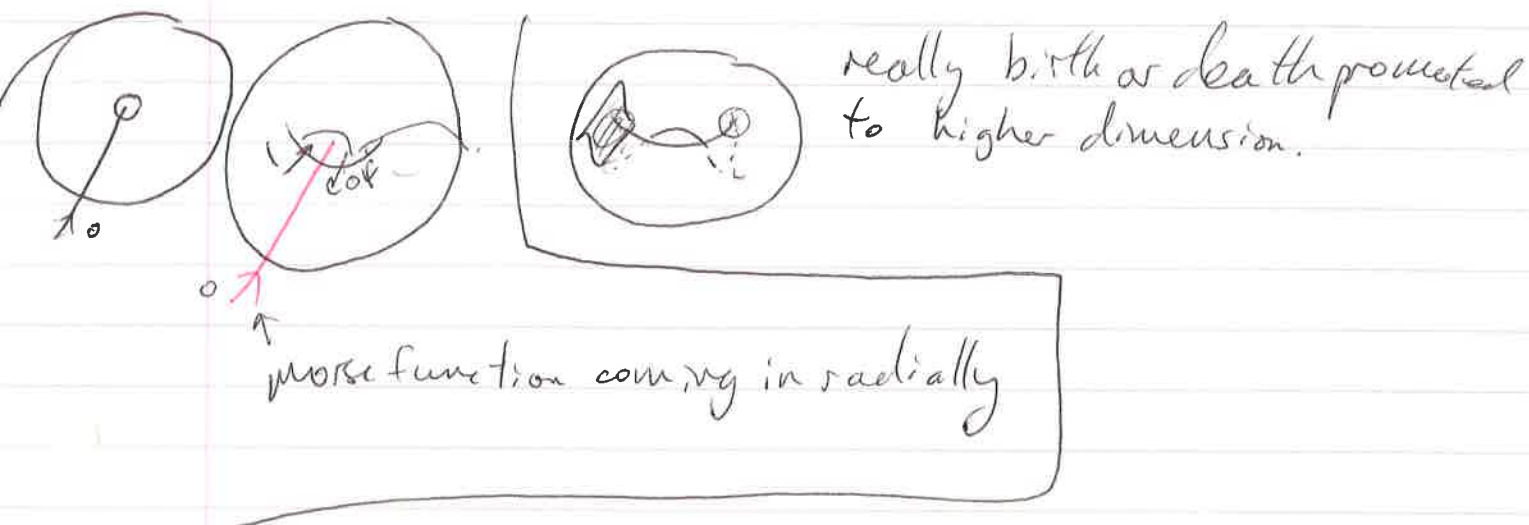 really birth or death promoted
to higher dimension.
0
0
morse function coming in radially